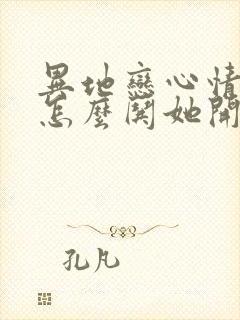 異地戀心情
怎麼鬨她開
孔凡